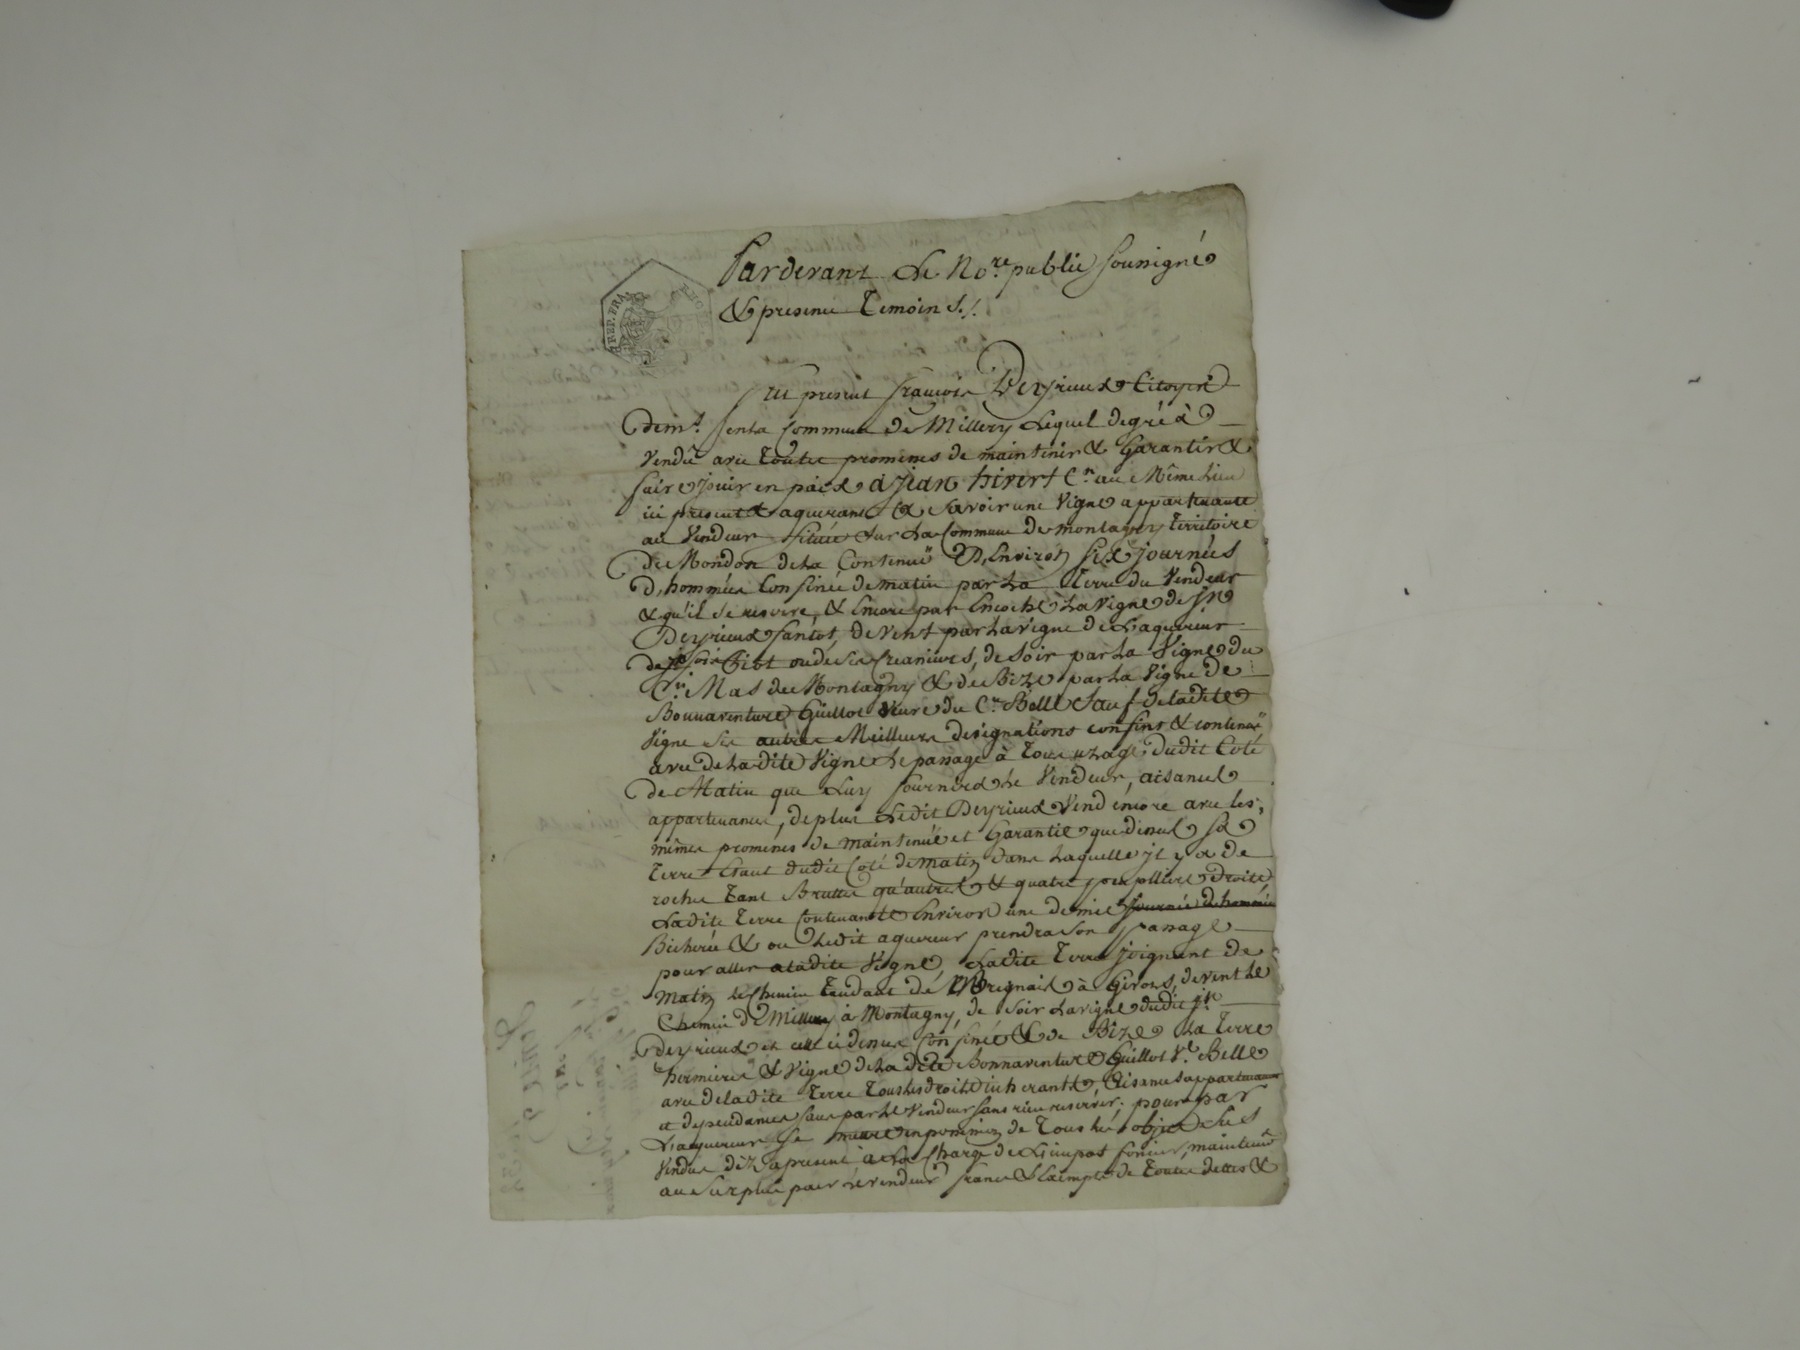 REP. FRA.
RHO
Pardevant Le No.re public soussigné
& presence Temoins./.
fut present françois Deyrieux Citoyen
dem.t en la Commune de Millery Lequel de gré à
Vendû avec Toutes promesses de maintenir & Garantir &
faire jouir en paix à jean hivert C.n au Même Lieu
ici present & aquerant & Savoir une Vigne appartenante
au Vendeur Située Sur La Commune de montagny Territoire
de Mondon de La Contenuë D'Environ six journées
d'hommées Confinée de matin par La Terre du Vendeur
& qu'il Se reserve, & Encore par Encoche La Vigne de j.n
Deyrieux Santot, de Vent par La vigne de L'aquereur
ou de Ses Creanciers, de Soir par La Vigne du
C.n Mas de Montagny & de Bize par La Vigne de
Bonnaventure Guillot Veuve du C.n Belle Sauf de ladite
Vigne Ses autres Meilleurs designations confins & contenuë
avec de La dite Vigne Le passage à Tous uzage dudit Coté
de Matin que Luy fournira Le Vendeur, aisances
appartenances, de plus Ledit Deyrieux Vend encore avec les
mêmes promesses de maintenuë et Garantie que dessus Sa
Terre Etant dudit Coté de matin dans Laquelle il y a de
roches Tant Bruttes qu'autres & quatre droite
Ladite Terre Contenante Environ une demie journée de hommée
Bicherée & ou Ledit aquereur prendra Son passage
pour aller a ladite Vigne, Ladite Terre joignant de
Matin Le Chemin Tendant de à Givors, de vent Le
Chemin de Millery à Montagny, de Soir La vigne dudit j.n
deyrieux et celle ci dessus Confinée & de Bize La Terre
hermierre & Vigne de La dite Bonnaventure Guillot V.e Belle
avec de ladite Terre Tous les droits inherants, Aisances appartenances
et dependances Sans par Le Vendeur Sans rien reserver. pour par
L'aquereur Se mettre en possession de Tous les objets Les
Vendus dèz apresent à La Charge de L'impot foncier, maintenu
au Surplus par Le Vendeur francs & Exempts de Toutes dettes &